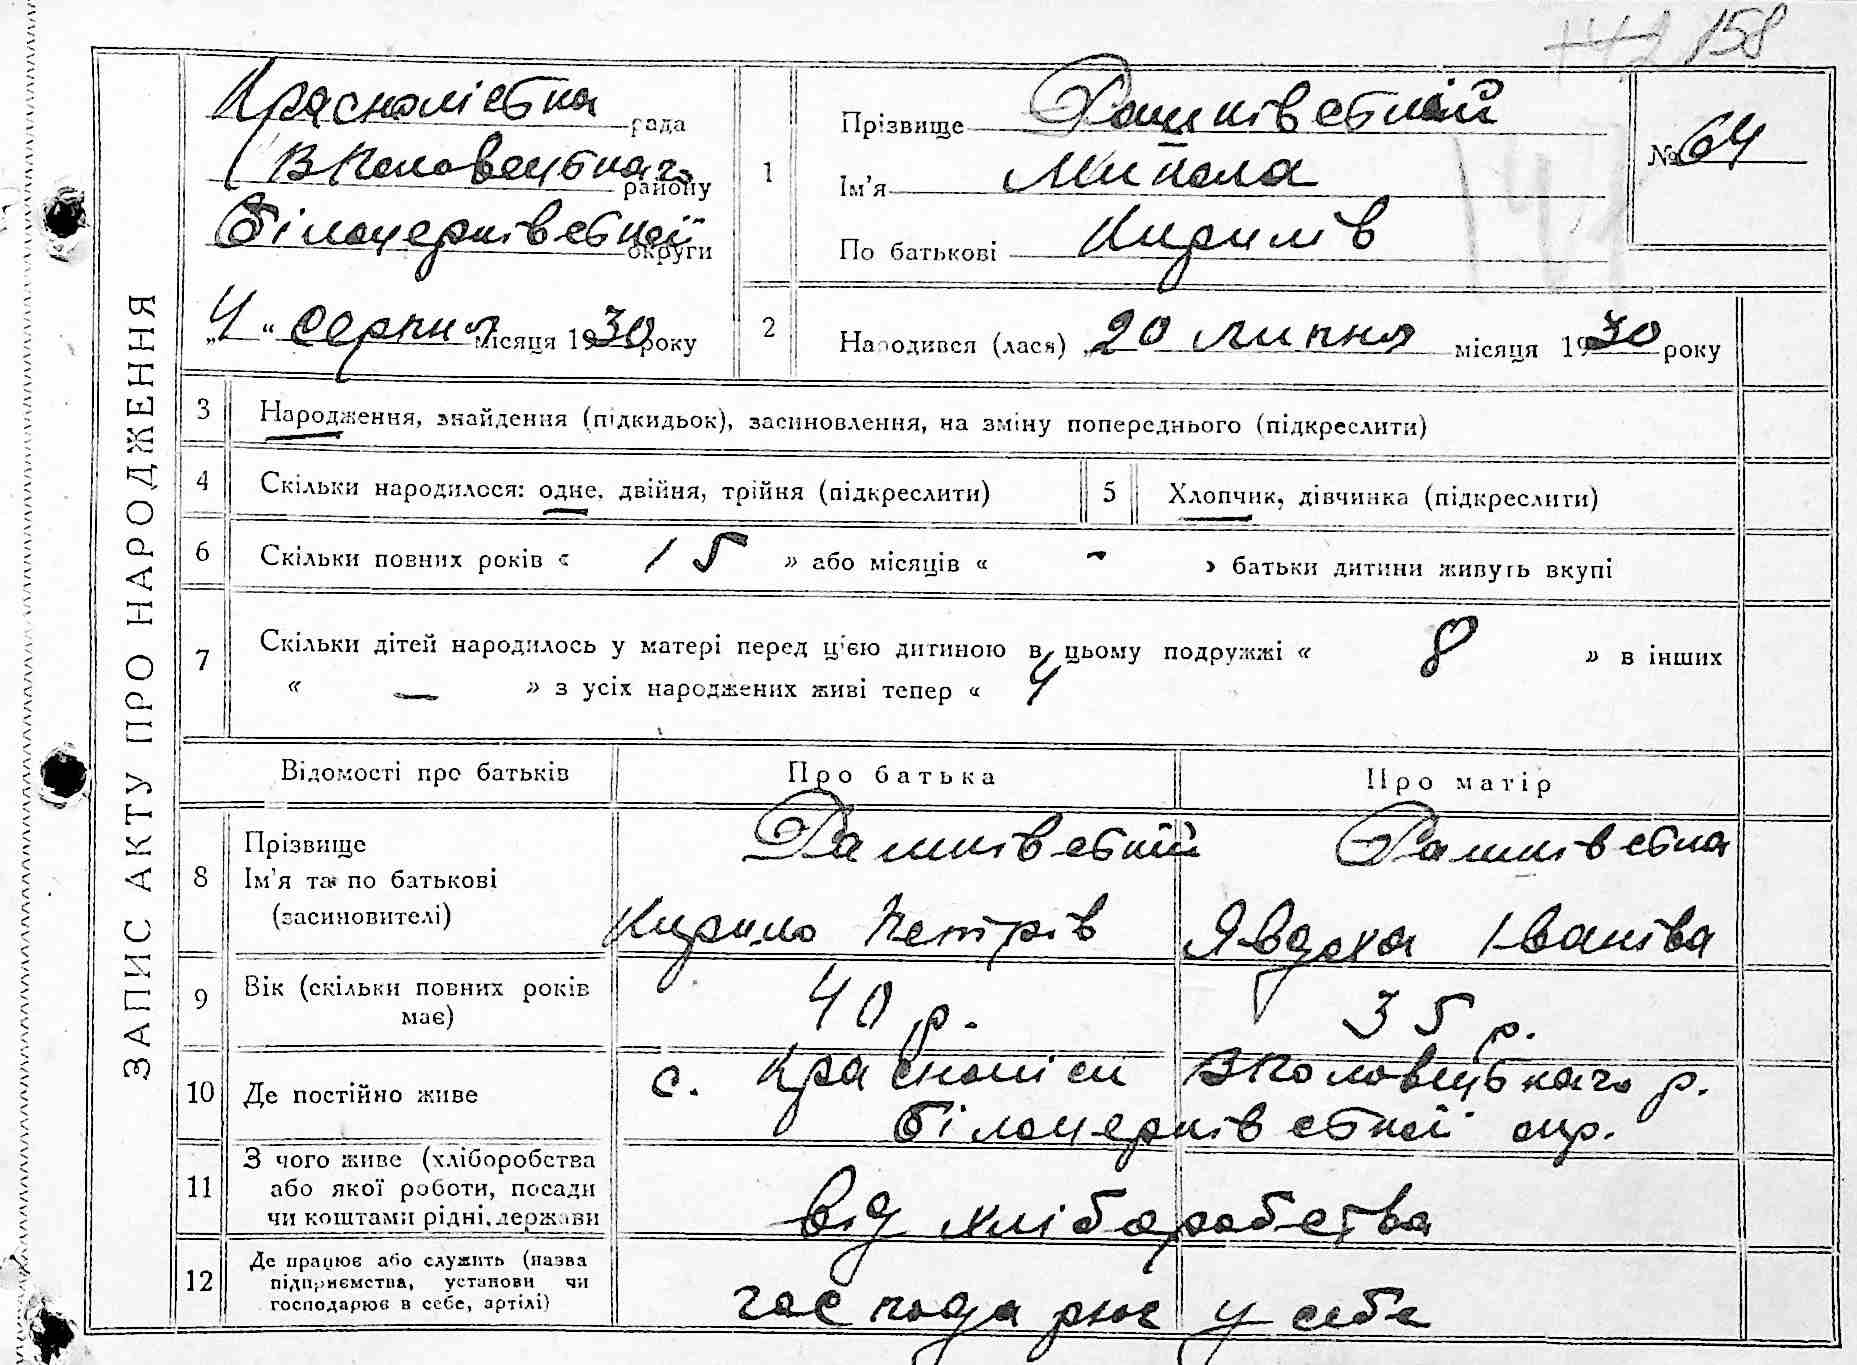 158
ЗАПИС АКТУ ПРО НАРОДЖЕННЯ
Краснолісська рада
В Половецького району
Білоцерківської округи
„4“ серпня місяця 1930 року
1
Прізвище Рашківський
Ім'я Микола
По батькові Кирилів
№ 64
2
Народився (лася) „20 липня місяця 1930 року
3 Народження, знайдення (підкидьок), засиновлення, на зміну попереднього (підкреслити)
4 Скільки народилося: одне, двійня, трійня (підкреслити) 5 Хлопчик, дівчинка (підкреслити)
6 Скільки повних років « 15 » або місяців « - » батьки дитини живуть вкупі
7 Скільки дітей народилось у матері перед цією дитиною в цьому подружжі « 8 » в інших
« — » з усіх народжених живі тепер « 4
Відомості про батьків Про батька Про матір
8 Прізвище Рашківський Рашківська
Ім'я та по батькові
(засиновителі) Кирило Петрів Явдоха Іванівна
9 Вік (скільки повних років має) 40 р. 35 р.
10 Де постійно живе с. Красноліси В Половецького р.
Білоцерківської окр.
11 З чого живе (хліборобства
або якої роботи, посади
чи коштами рідні, держави від хліборобства
12 Де працює або служить (назва
підприємства, установи чи
господарює в себе, артілі) господарює у себе